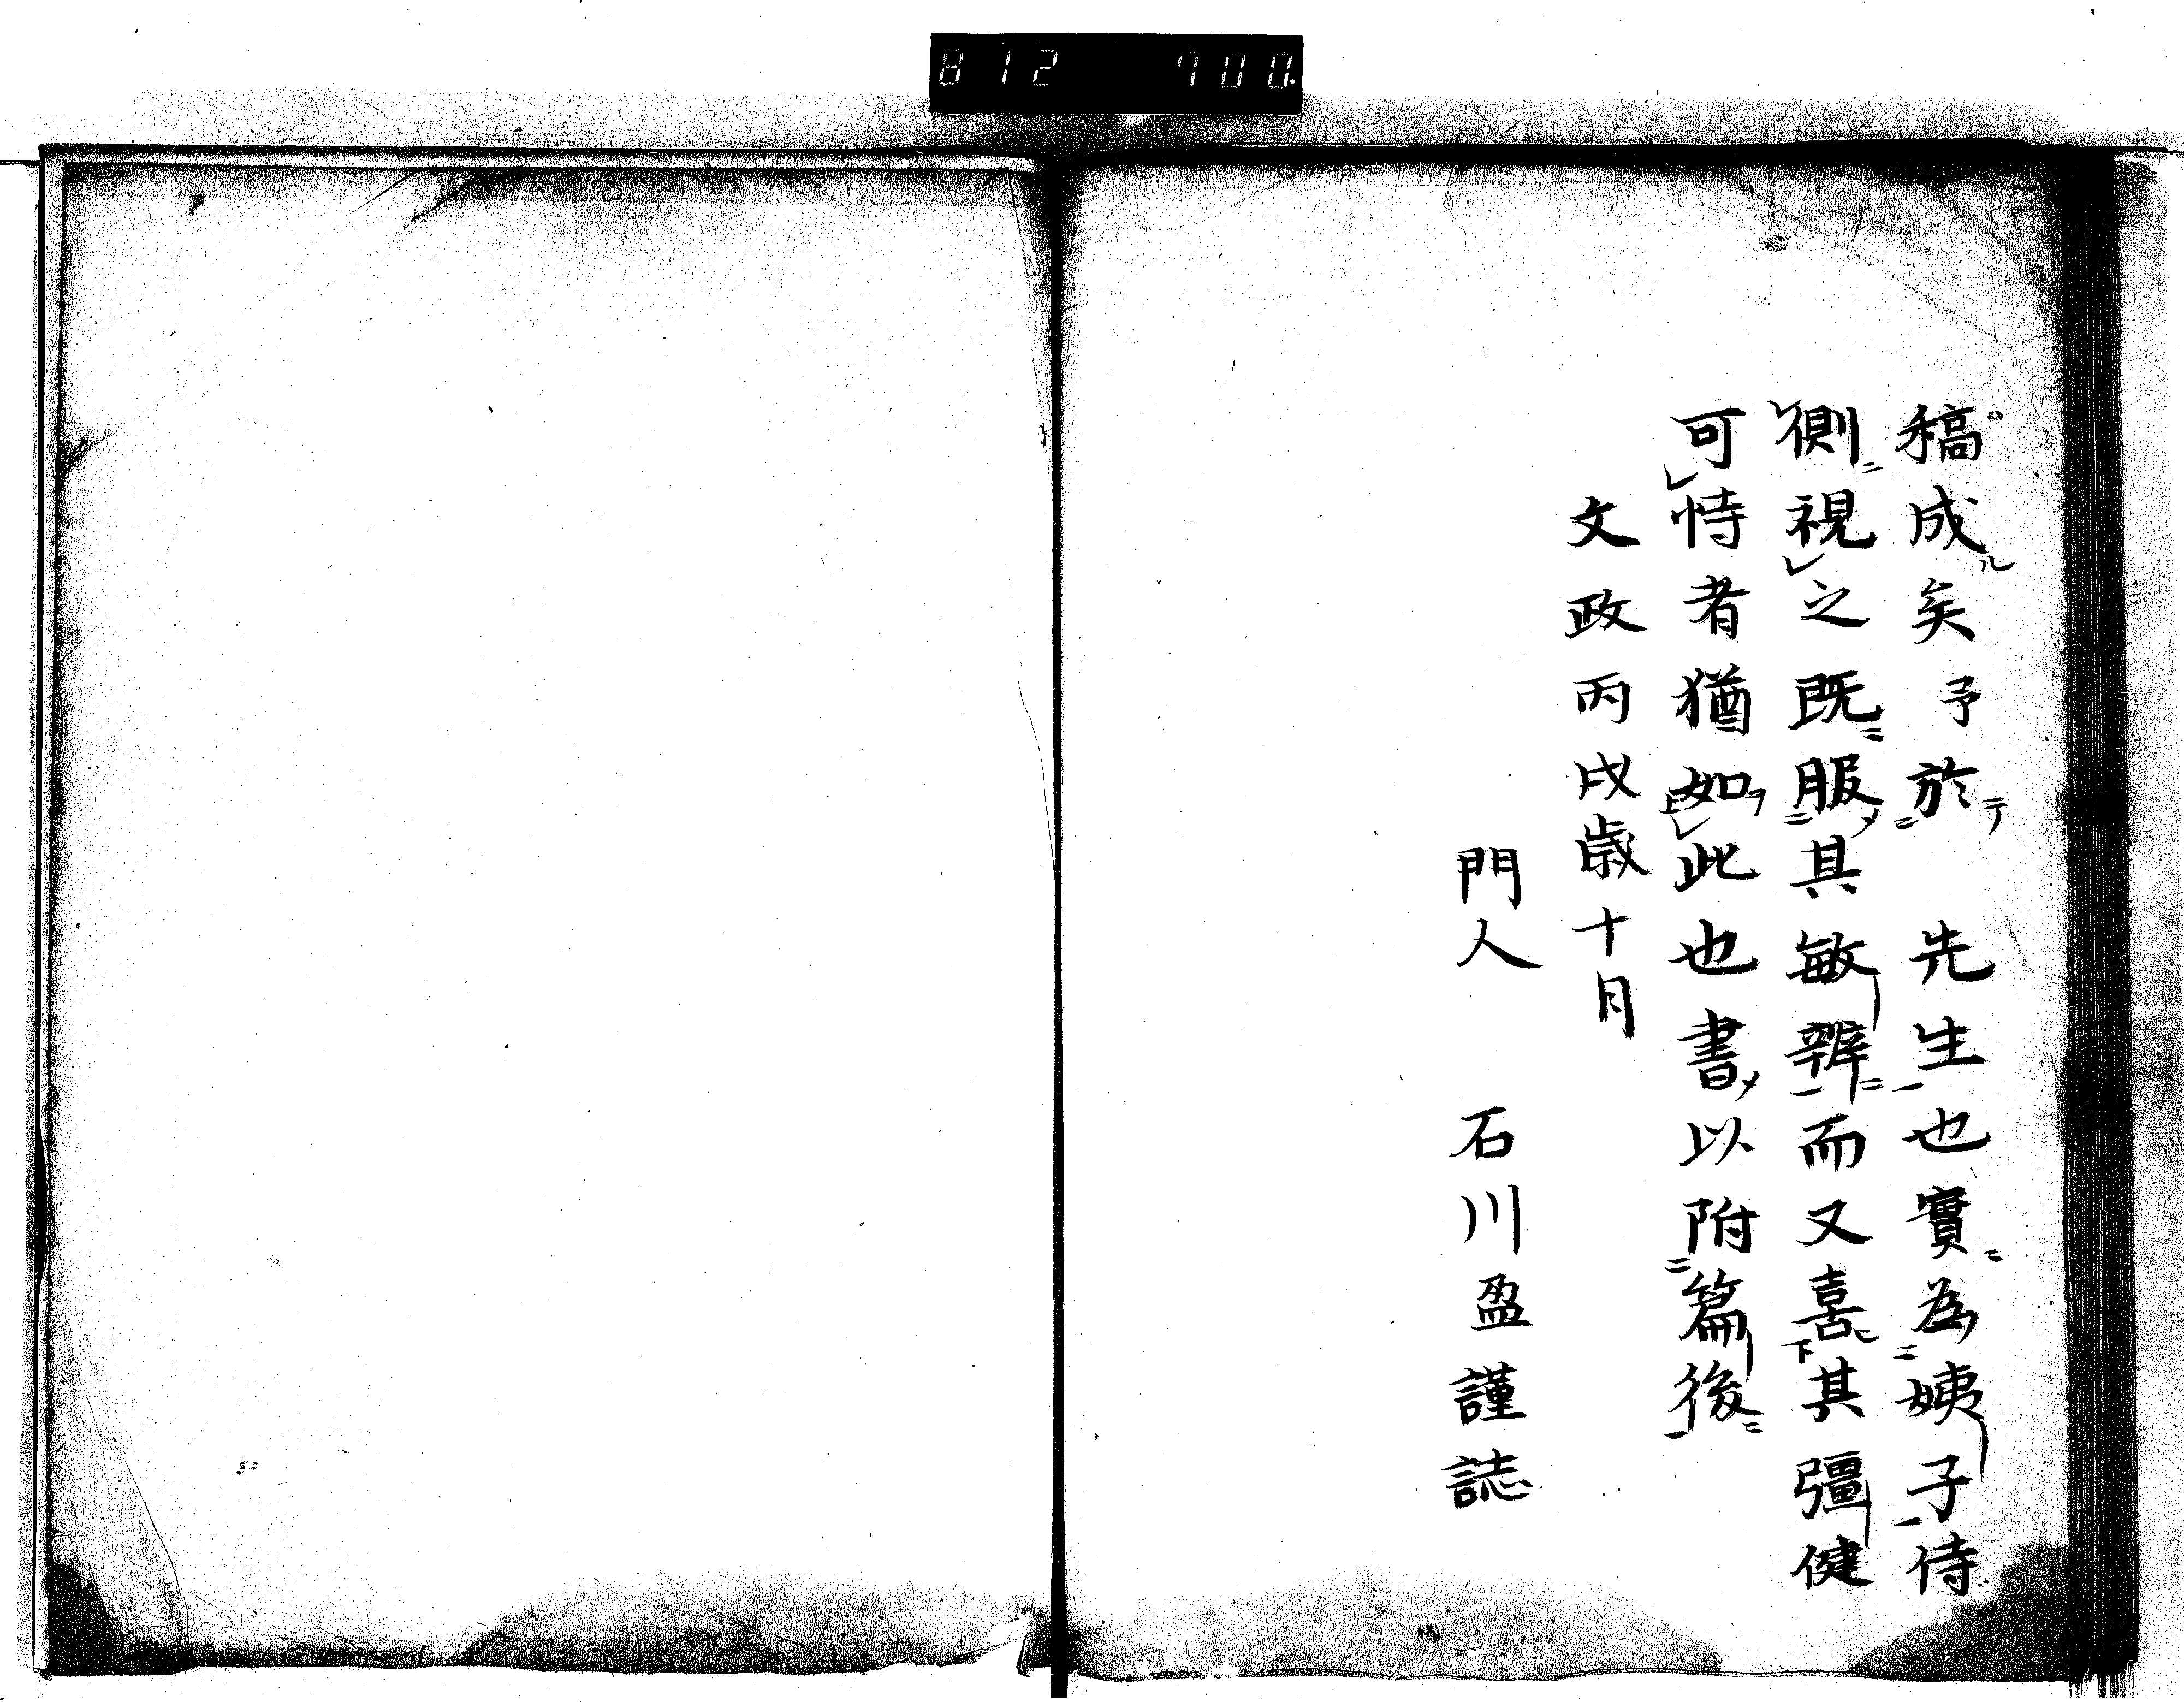 812 700.
稿成矣予於　先生也實為姨子侍
側視之既服其敏辨而又喜其彊健
可恃者猶如此也書以附篇後
文政丙戌歳十月
門人　石川盈謹誌